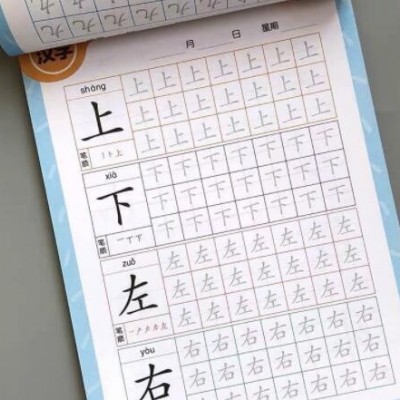 九 九 九 九 九 九 九
汉字
月 日 星期
shàng
上
上 上 上 上 上 上 上
上 上 上 上 上 上 上
上 上 上 上 上 上 上
笔顺 丨 ⺊ 上
xià
下
下 下 下 下 下 下 下
下 下 下 下 下 下 下
下 下 下 下 下 下 下
笔顺 一 丅 下
zuǒ
左
左 左 左 左 左 左 左
左 左 左 左 左 左 左
左 左 左 左 左 左 左
笔顺
yòu
右
右 右 右 右 右 右 右
右 右 右 右 右 右 右